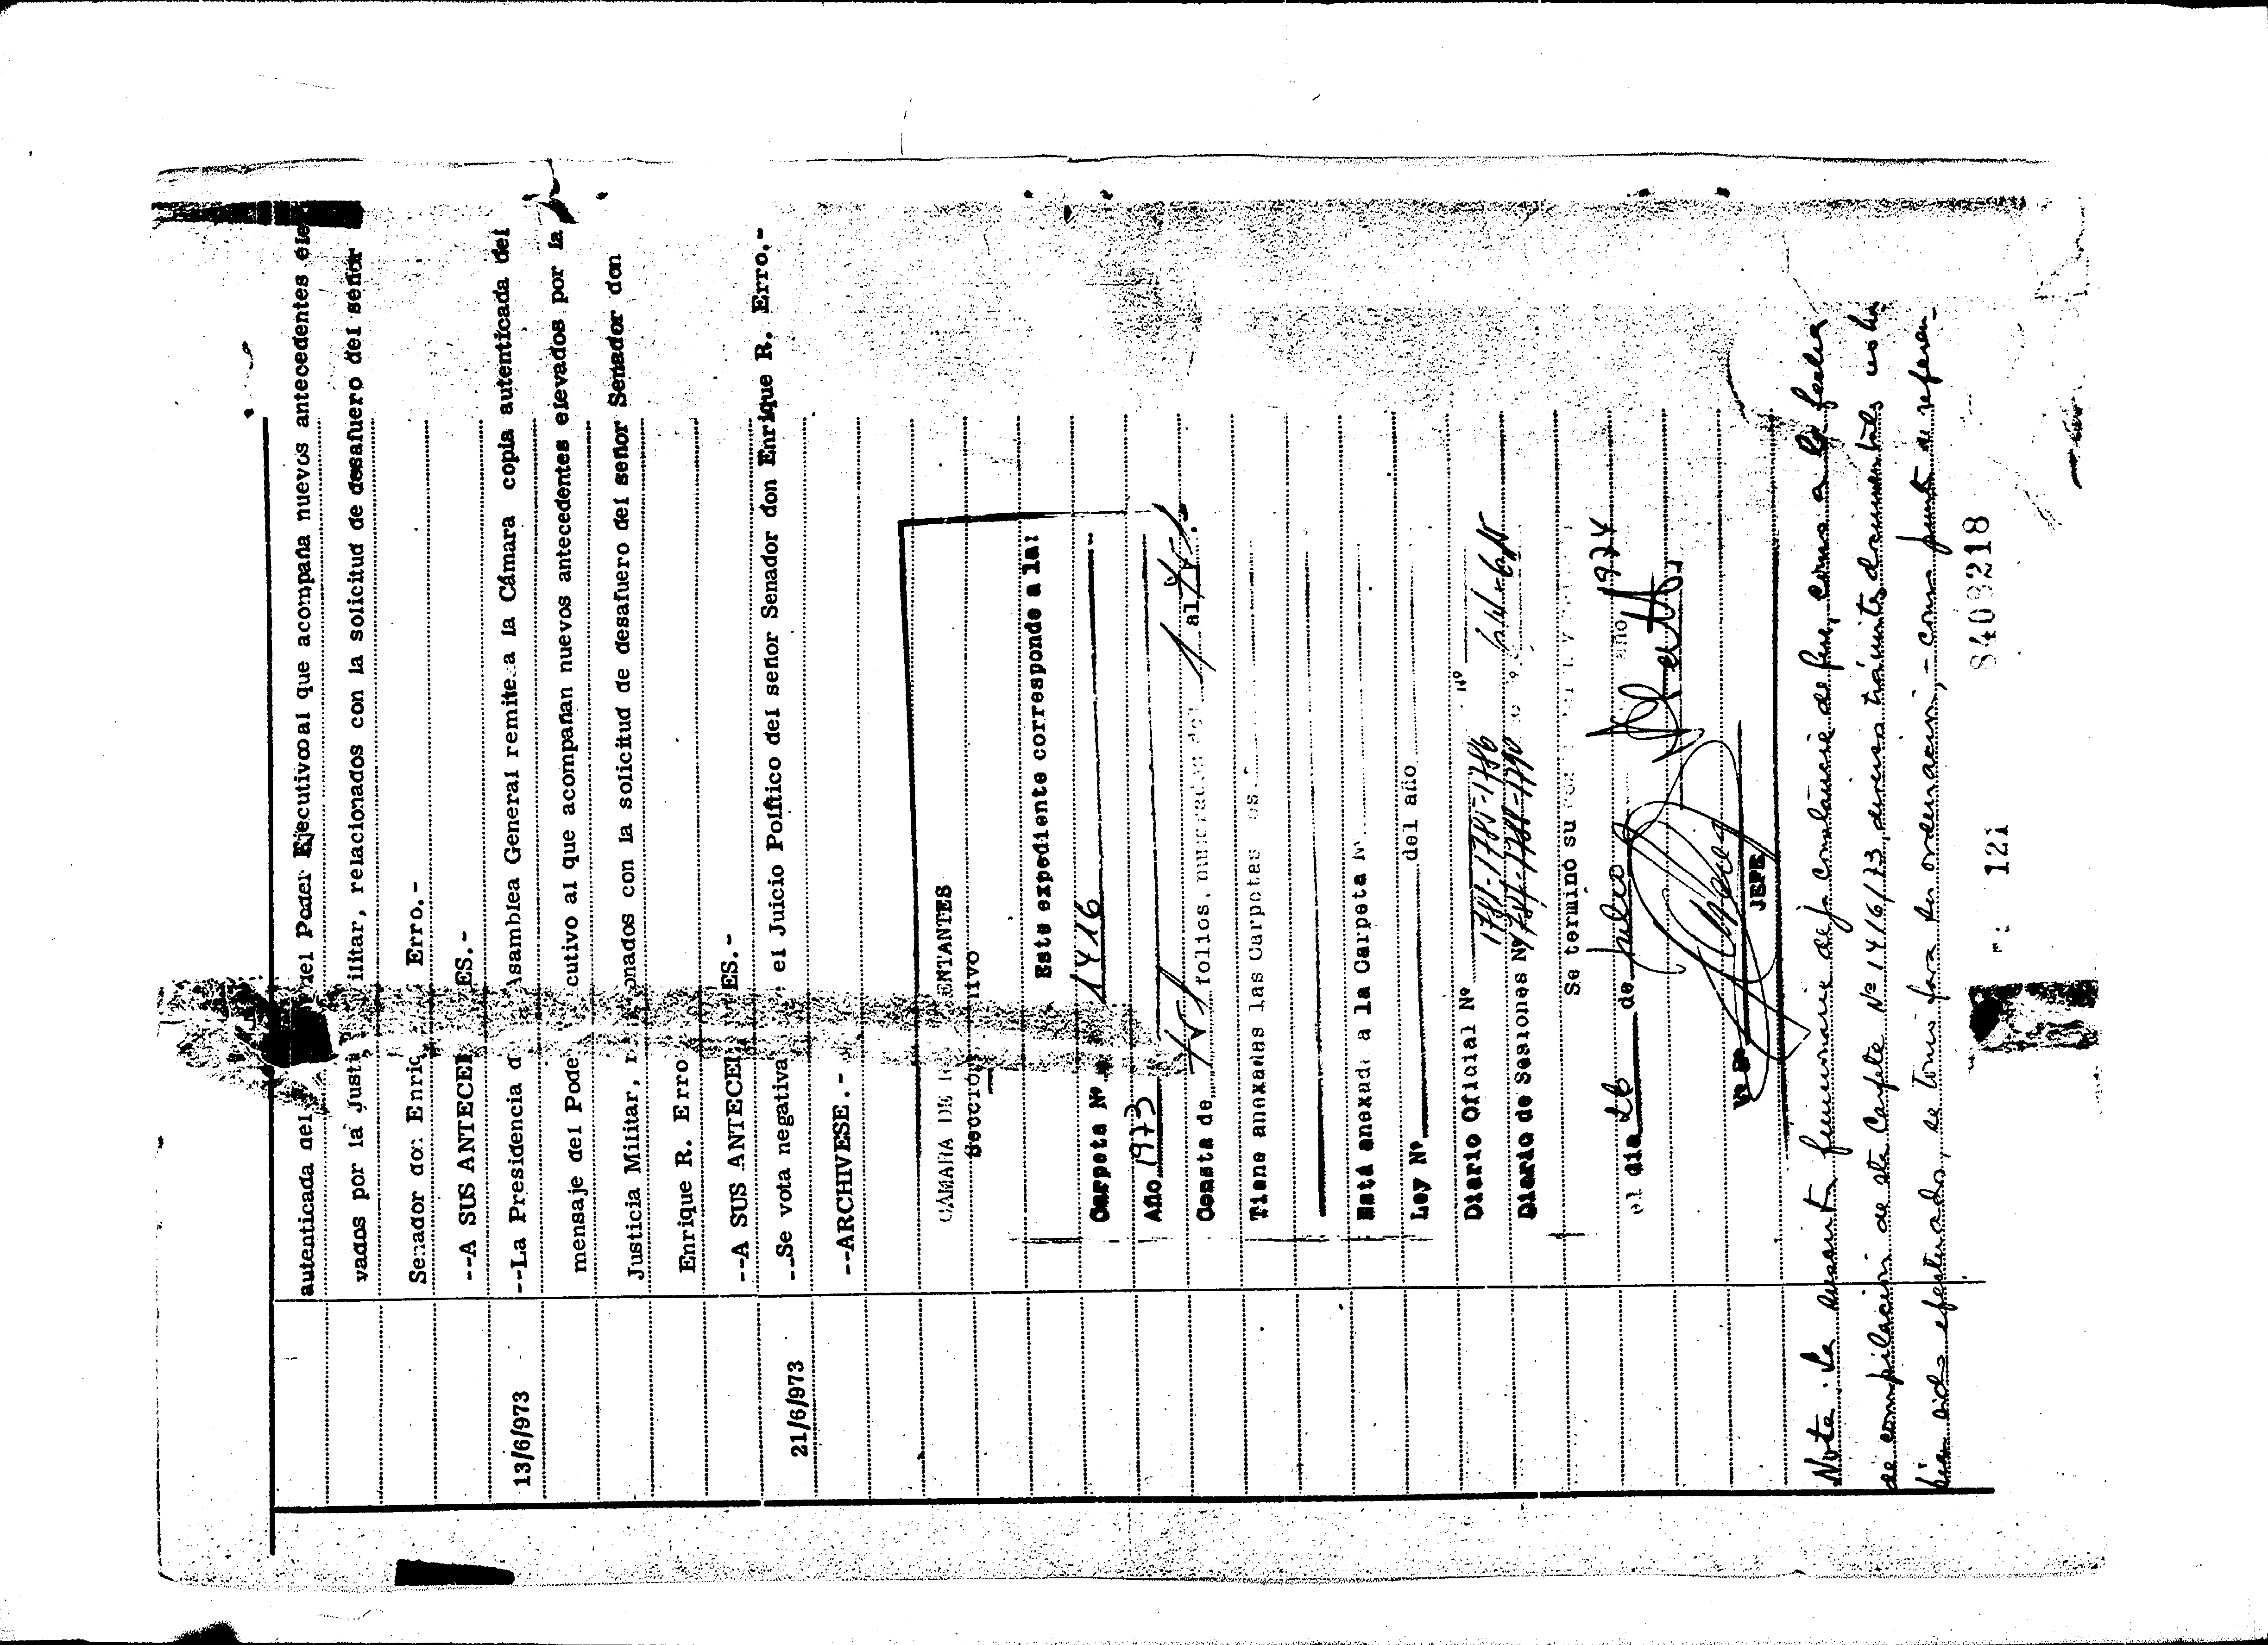 autenticada del del Poder Ejecutivo al que acompaña nuevos antecedentes ele
vados por la Justi ilitar, relacionados con la solicitud de desafuero del señor
Senador don Enriq Erro.-
--A SUS ANTECE ES.-
13/6/973 --La Presidencia d Asamblea General remite a la Cámara copia autenticada del
mensaje del Pode cutivo al que acompañan nuevos antecedentes elevados por la
Justicia Militar, r onados con la solicitud de desafuero del señor Senador don
Enrique R. Erro
--A SUS ANTECE ES.-
21/6/973 --Se vota negativa el Juicio Político del señor Senador don Enrique R. Erro.-
--ARCHIVESE.-
CÁMARA DE R ENTANTES
Sección tivo
Este expediente corresponde a la:
Carpeta Nº 1416
Año 1973
Consta de folios, numerados del 1 al
Tiene anexadas las Carpetas
Está anexada a la Carpeta
Ley Nº del año
Diario Oficial Nº Nº
Diario de Sesiones Nº 1784-1785-1786
1787-1788-1790
Se terminó su
el día 26 de julio año 1974
Vº Bº
JEFE
Nota: La suscrita funcionaria deja constancia de que, como a la fecha
de compilación de esta Carpeta Nº 1416/73, diversos trámites documentales no ha
bían sido efectuados, se tomó para su ordenación, - como punto de referen-
r: 121 8403218